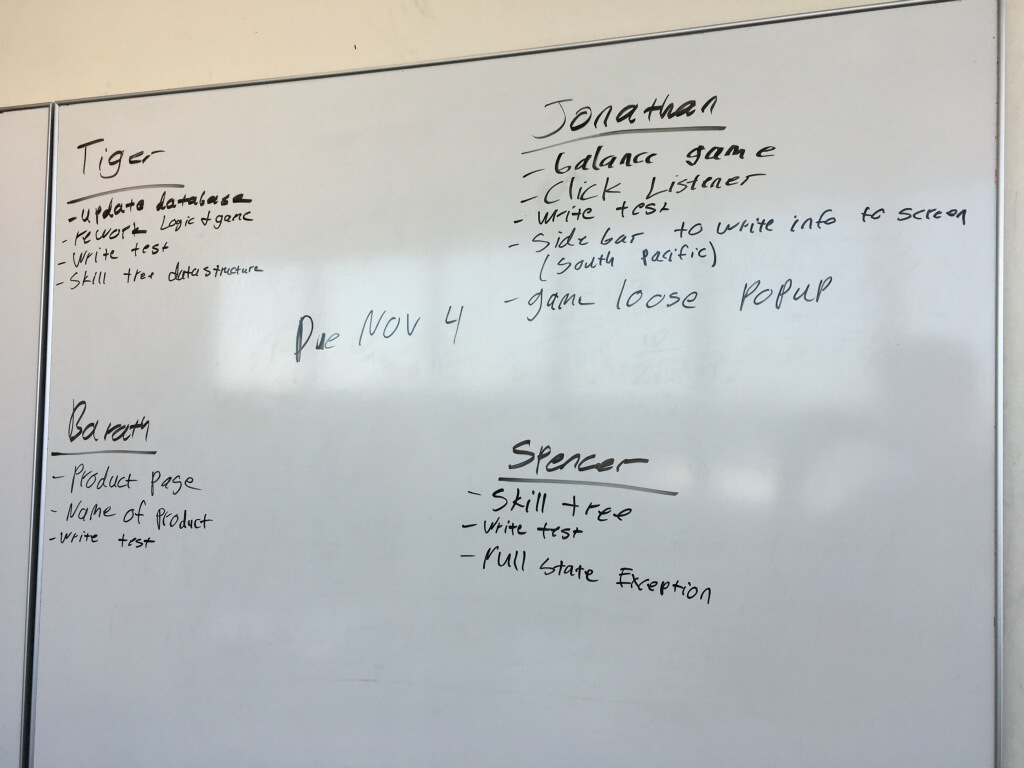 Tiger
- update database
- rework Logic & game
- write test
- Skill tree datastructure
Jonathan
- balance game
- Click Listener
- write test
- Side bar to write info to screen
(South Pacific)
- game loose popup
Due Nov 4
Barath
- Product Page
- Name of Product
- write test
Spencer
- Skill tree
- write test
- Pull State Exception